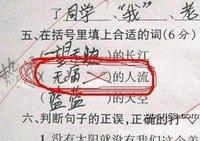 了同学、“我”、老
五、在括号里填上合适的词(6分)
(一望无际)的长江
热
(无痛)的人流
(蓝蓝)的天空
六、判断句子的正误,正确的打
1.没有太阳就没有我们这个美